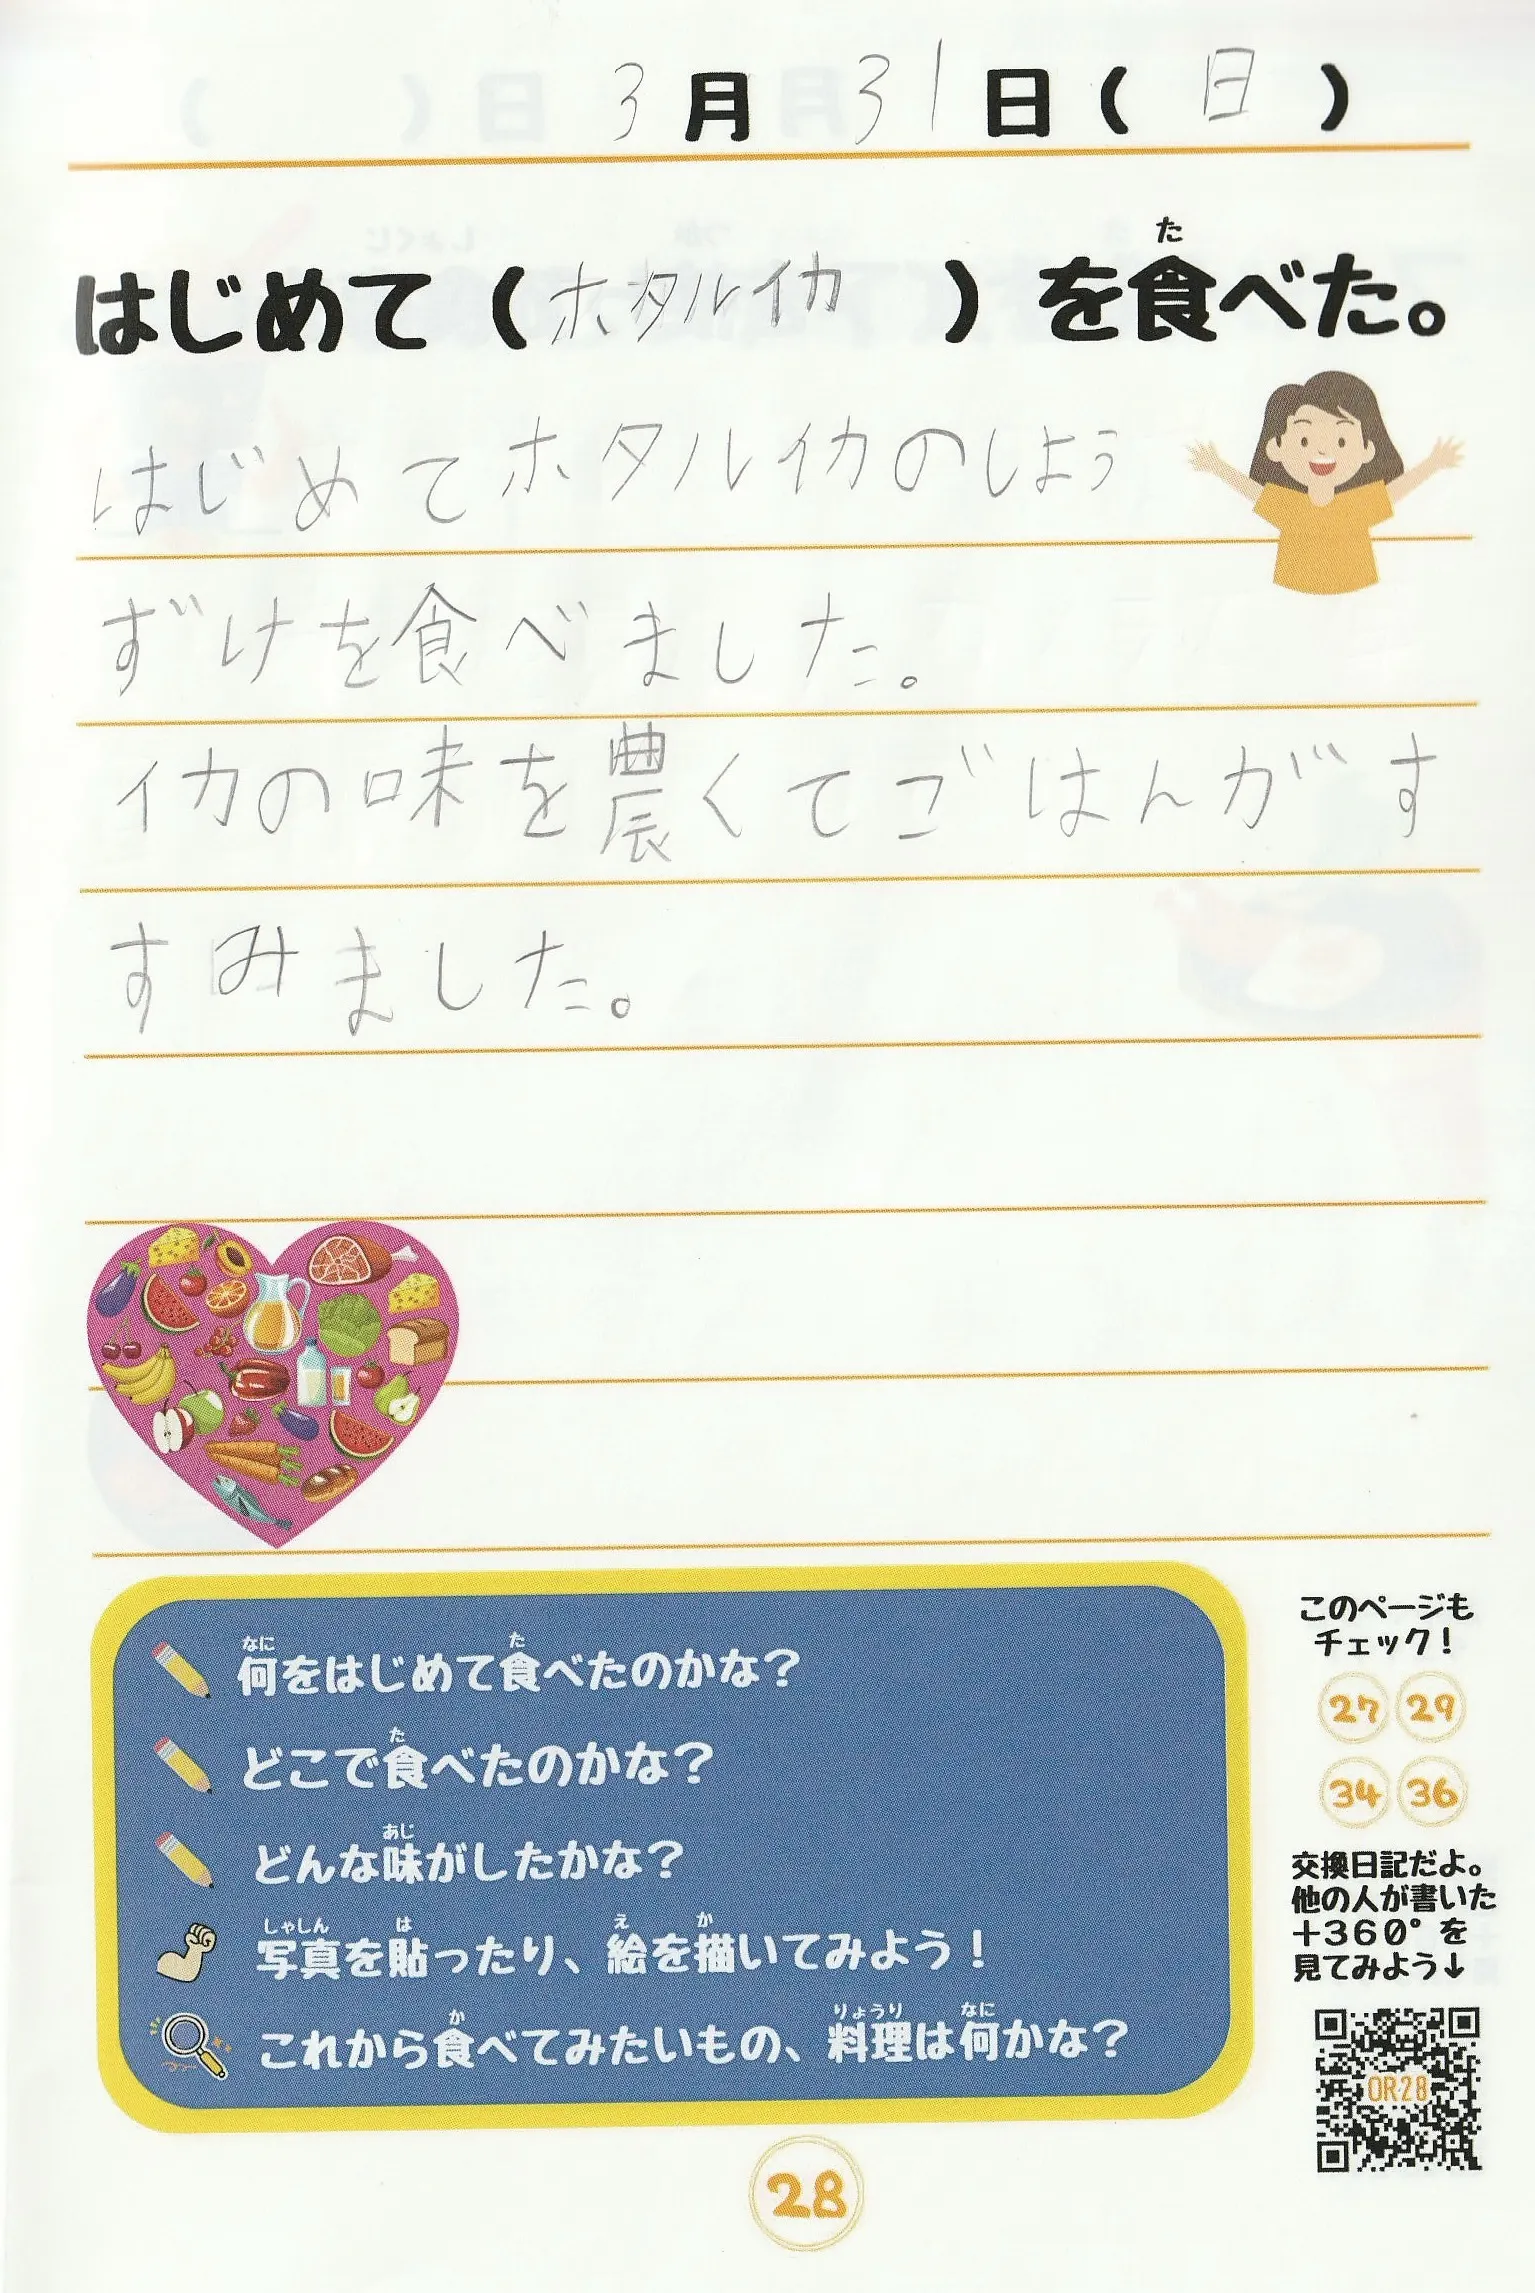 3月31日(日)
はじめて(ホタルイカ)を食べた。
た
はじめてホタルイカのしょう
ずけを食べました。
イカの味を農くてごはんがす
すみました。
何をはじめて食べたのかな?
なに
た
どこで食べたのかな?
た
どんな味がしたかな?
あじ
写真を貼ったり、絵を描いてみよう!
しゃしん
は
え
か
これから食べてみたいもの、料理は何かな?
か
りょうり
なに
このページも
チェック!
27 29
34 36
交換日記だよ。
他の人が書いた
+360°を
見てみよう↓
OR-28
28